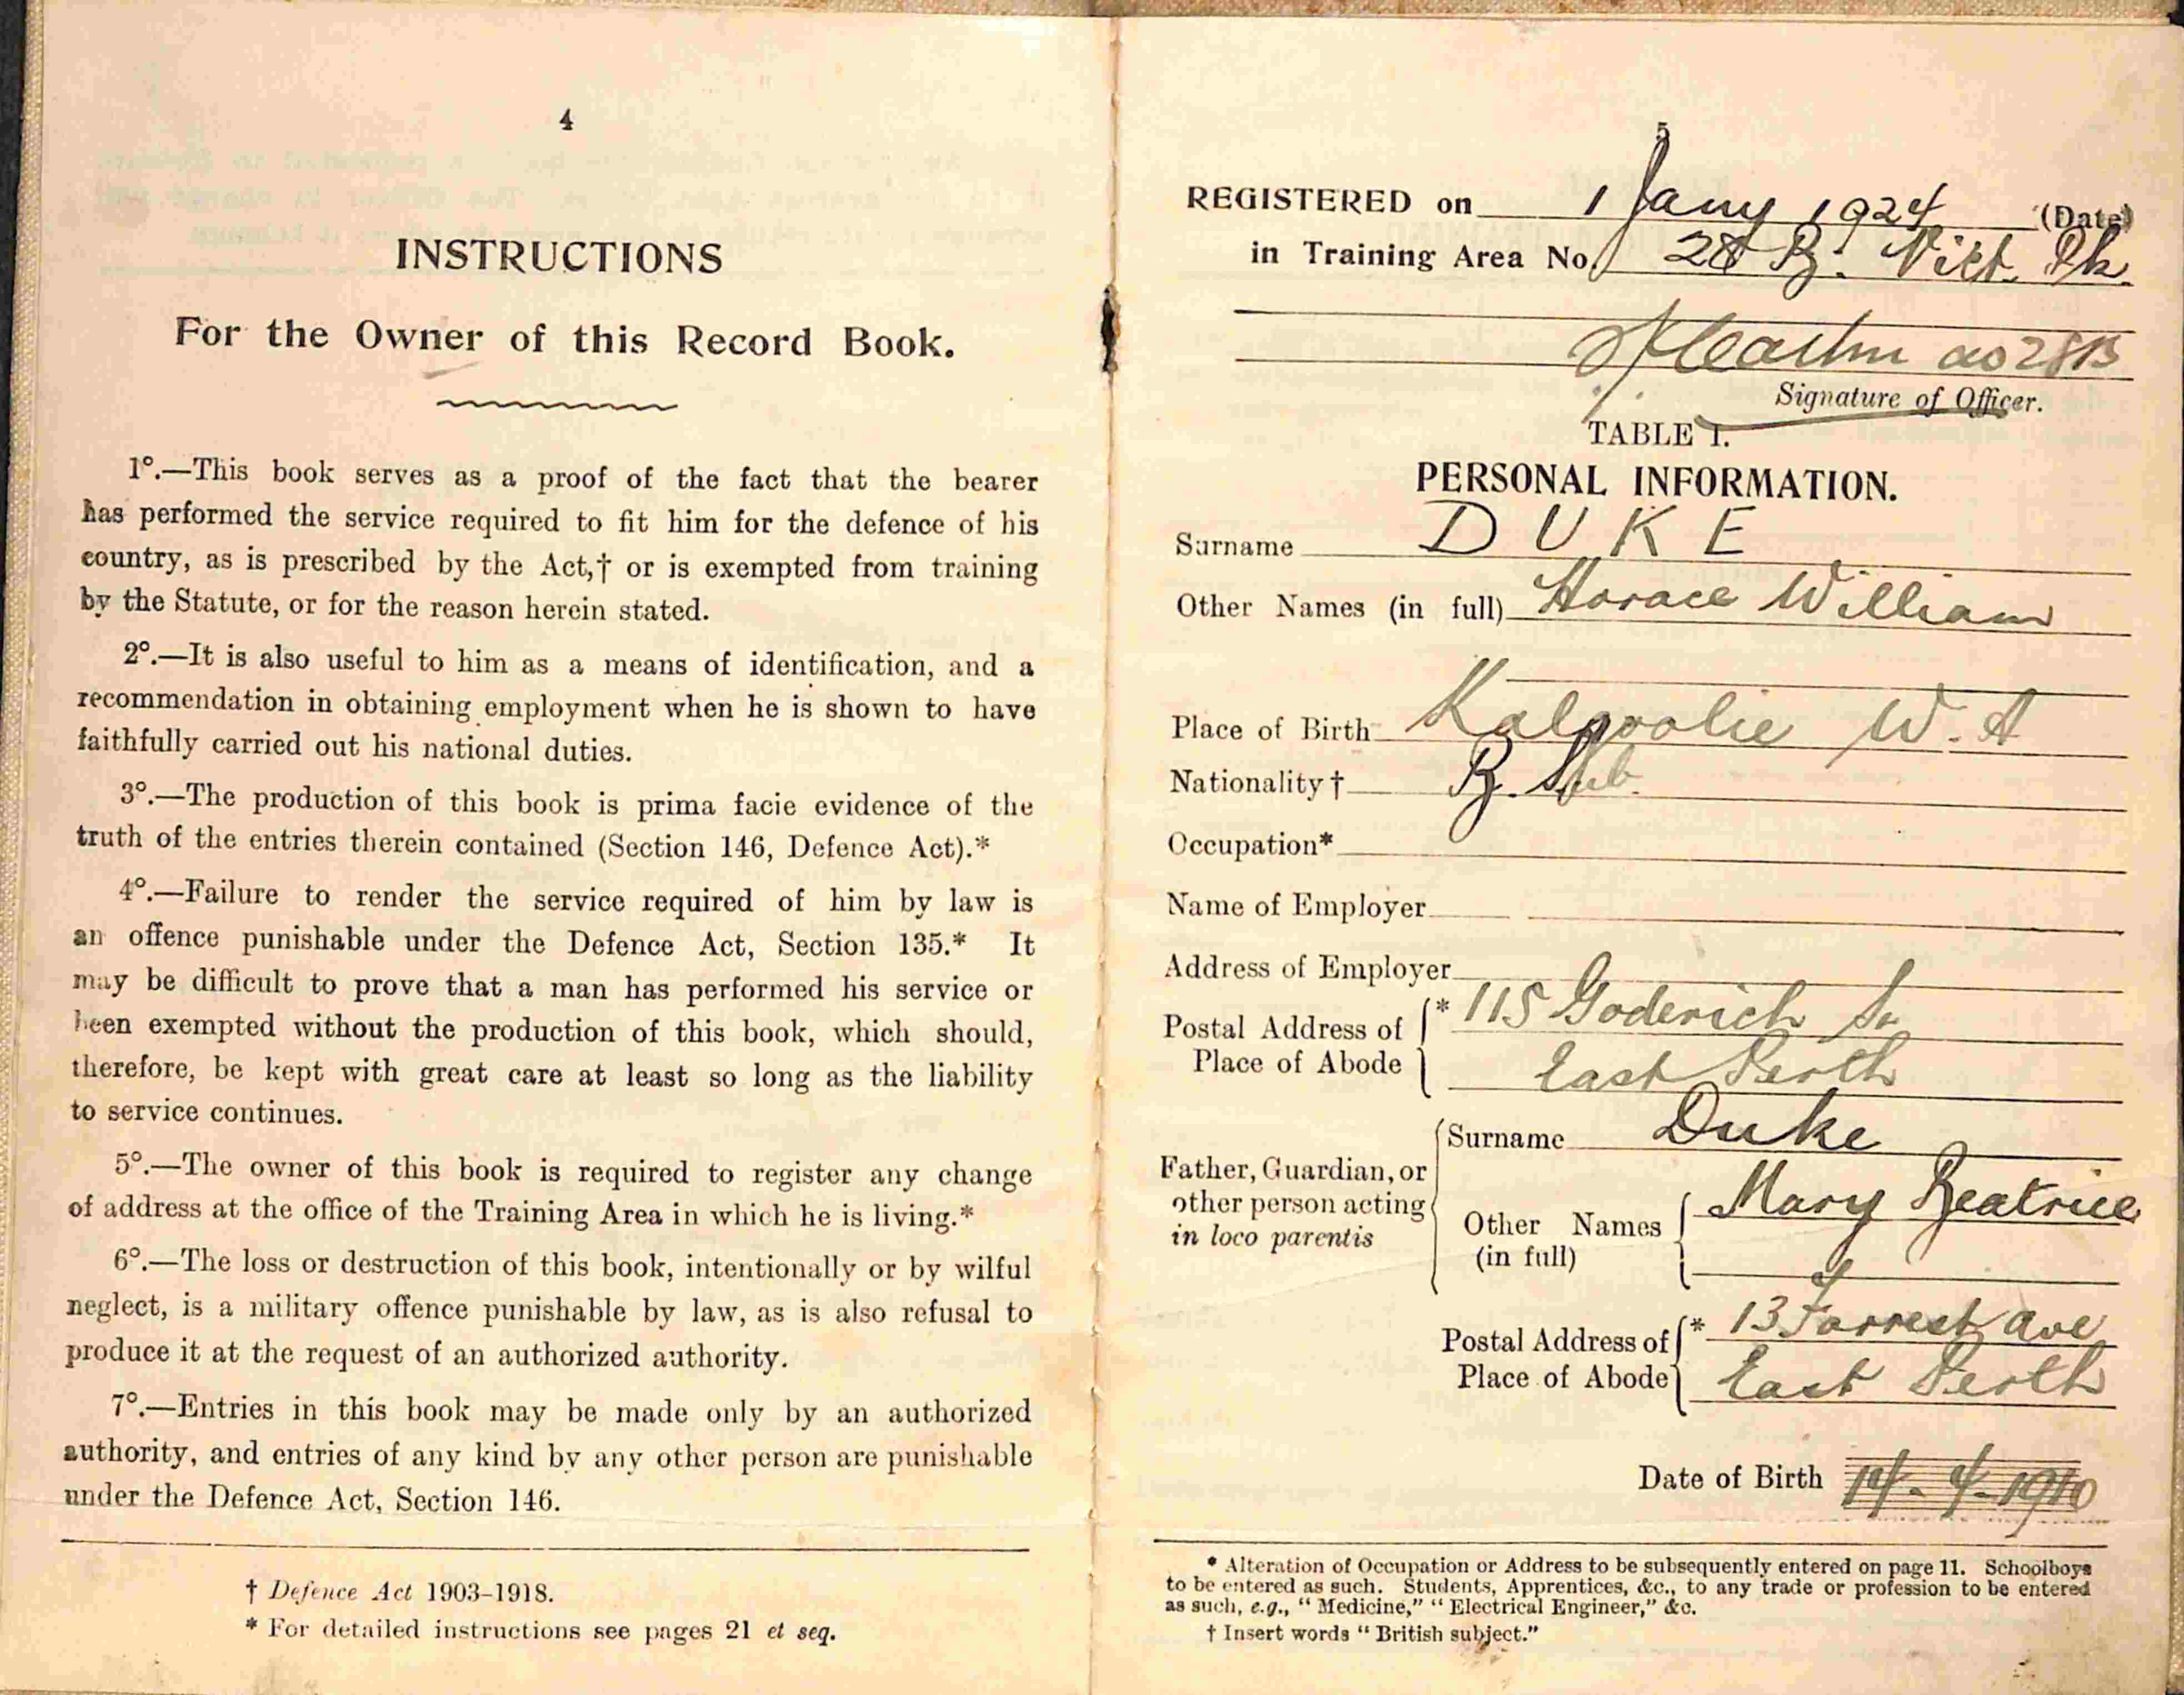 4
INSTRUCTIONS
For the Owner of this Record Book.
1°.—This book serves as a proof of the fact that the bearer
has performed the service required to fit him for the defence of his
country, as is prescribed by the Act,† or is exempted from training
by the Statute, or for the reason herein stated.
2°.—It is also useful to him as a means of identification, and a
recommendation in obtaining employment when he is shown to have
faithfully carried out his national duties.
3°.—The production of this book is prima facie evidence of the
truth of the entries therein contained (Section 146, Defence Act).*
4°.—Failure to render the service required of him by law is
an offence punishable under the Defence Act, Section 135.* It
may be difficult to prove that a man has performed his service or
been exempted without the production of this book, which should,
therefore, be kept with great care at least so long as the liability
to service continues.
5°.—The owner of this book is required to register any change
of address at the office of the Training Area in which he is living.*
6°.—The loss or destruction of this book, intentionally or by wilful
neglect, is a military offence punishable by law, as is also refusal to
produce it at the request of an authorized authority.
7°.—Entries in this book may be made only by an authorized
authority, and entries of any kind by any other person are punishable
under the Defence Act, Section 146.
† Defence Act 1903–1918.
* For detailed instructions see pages 21 et seq.
5
REGISTERED on 1 Jany 1924 (Date)
in Training Area No. 28 B. Vict. Pk.
ao 28B
Signature of Officer.
TABLE I.
PERSONAL INFORMATION.
Surname DUKE
Other Names (in full) Horace William
Place of Birth Kalgoolie W.A
Nationality † B. Sub.
Occupation*
Name of Employer
Address of Employer
Postal Address of * 115 Goderich St
Place of Abode East Perth
Surname Duke
Father, Guardian, or
other person acting
in loco parentis
Other Names Mary Beatrice
(in full)
Postal Address of * 13 Forrest Ave
Place of Abode East Perth
Date of Birth 14-4-1910
* Alteration of Occupation or Address to be subsequently entered on page 11. Schoolboys
to be entered as such. Students, Apprentices, &c., to any trade or profession to be entered
as such, e.g., "Medicine," "Electrical Engineer," &c.
† Insert words "British subject."